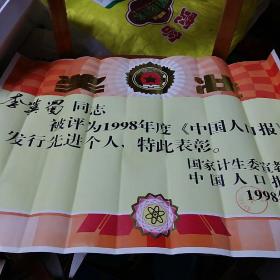 奖状
李 蜀 同志
被评为1998年度《中国人口报》
发行先进个人，特此表彰。
国家计生委宣教
中国人口报
1998